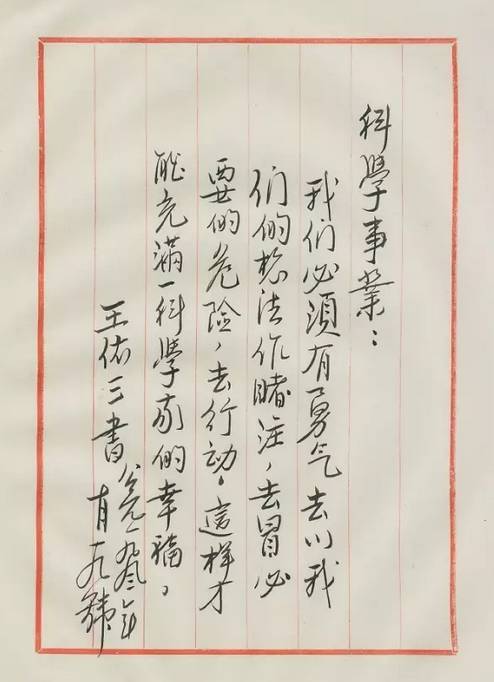 科學事業：
我们必須有勇气去以我
们的想法作賭注，去冒必
要的危险，去行动。這样才
能充滿一科學家的幸福。
王佑三書
公元一九九三年